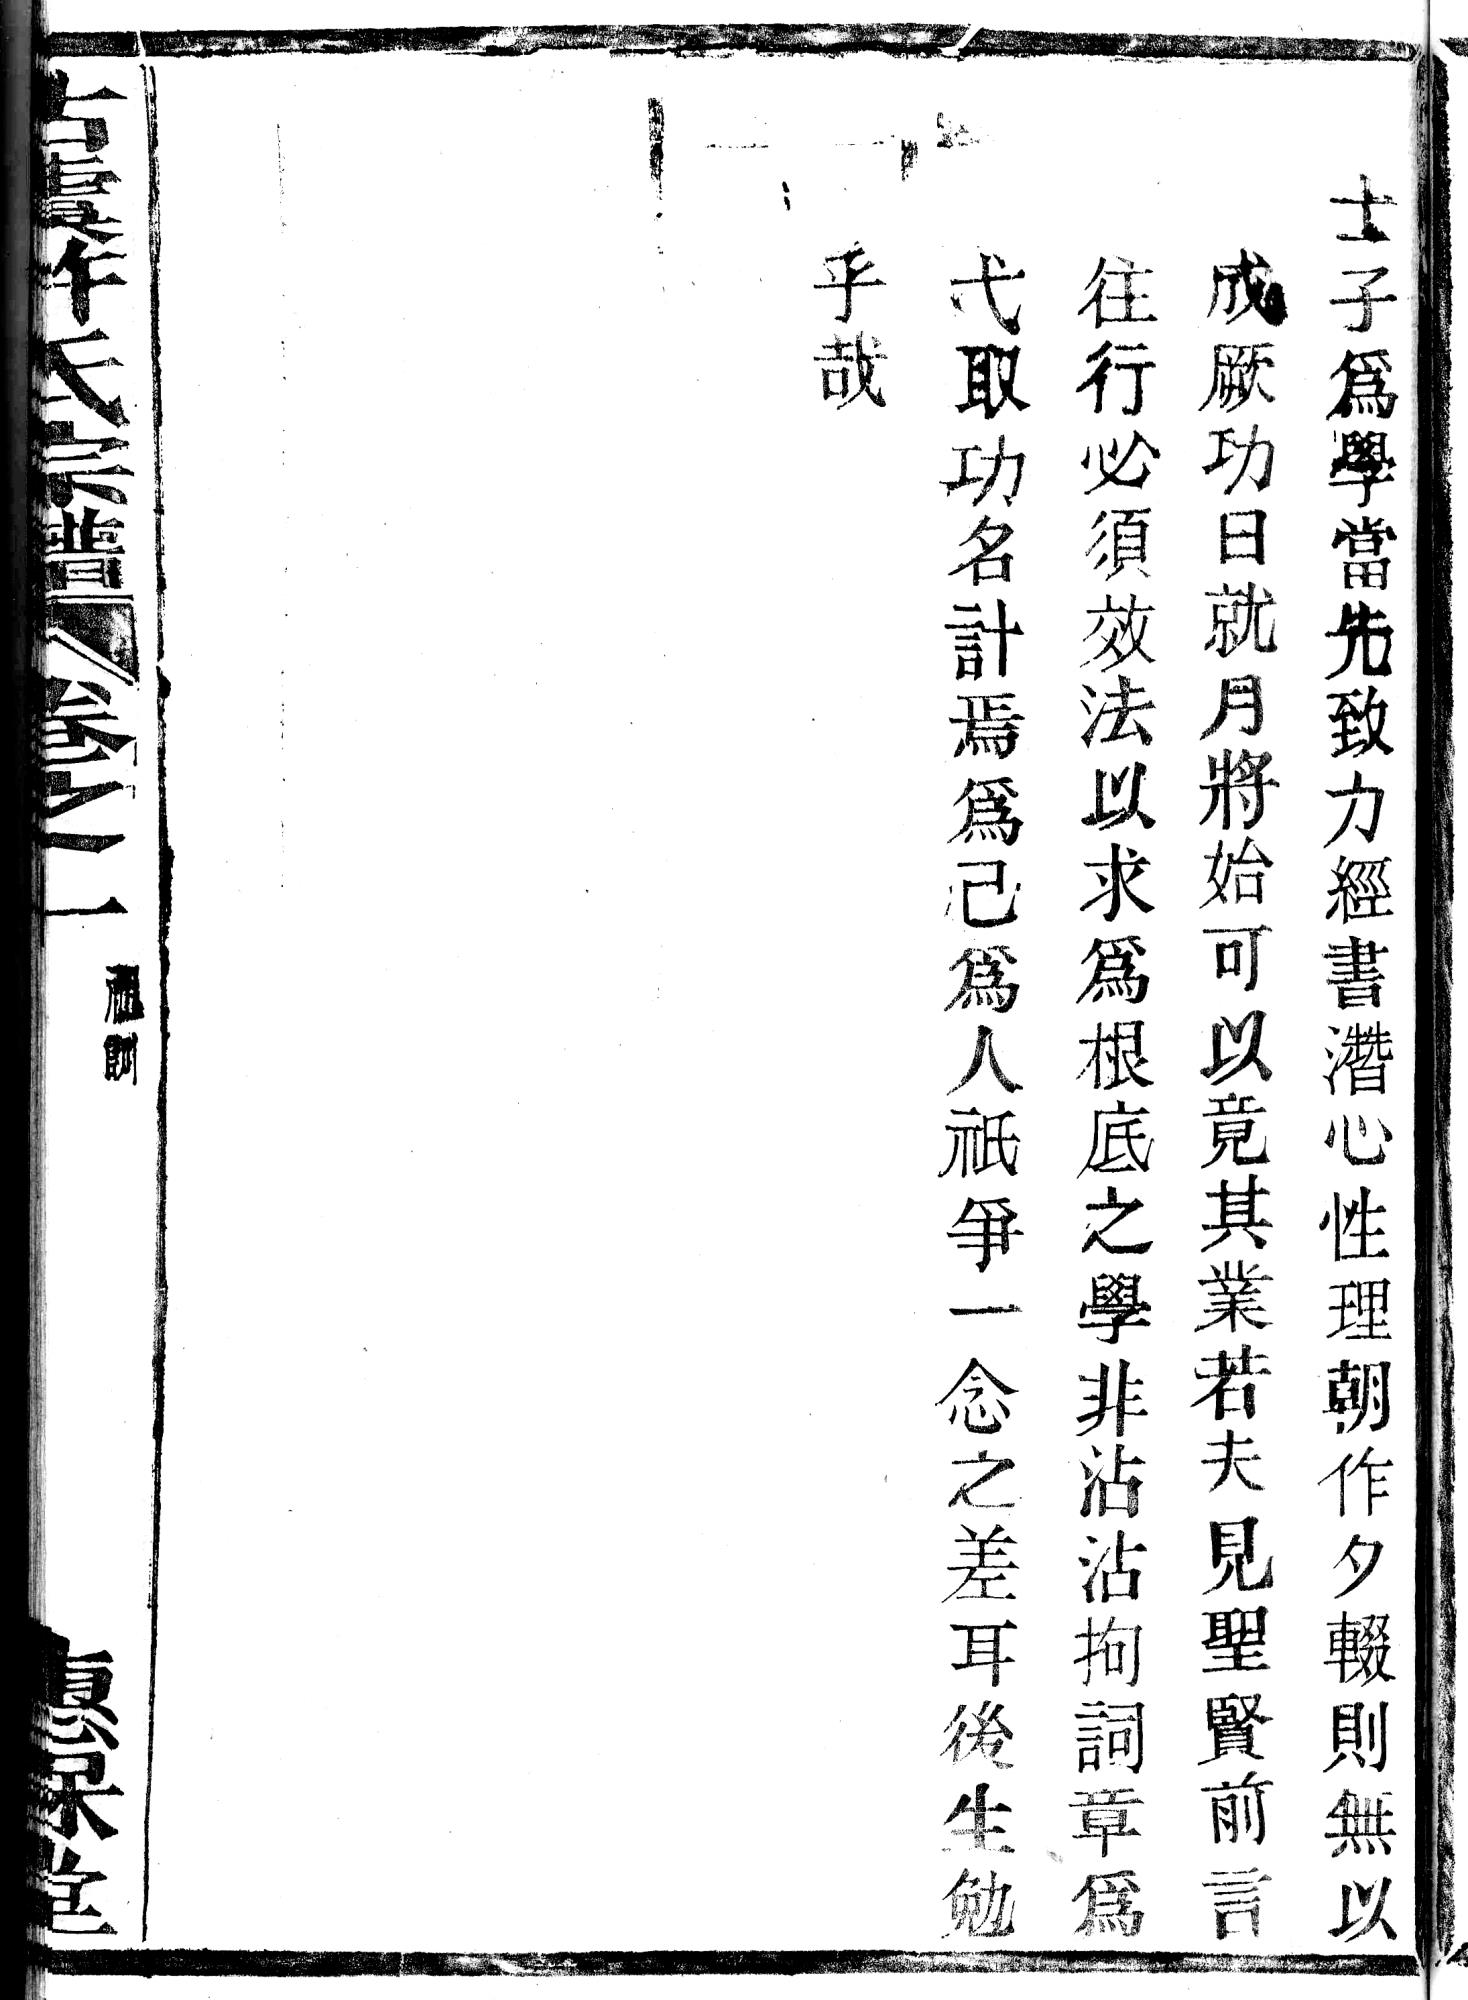 士子爲學當先致力經書濳心性理朝作夕輟則無以
成厥功日就月將始可以竟其業若夫見聖賢前言
往行必須效法以求爲根底之學非沾沾拘詞章爲
弋取功名計焉爲己爲人祇爭一念之差耳後生勉
乎哉
氏宗譜
卷之一
祖訓
堂